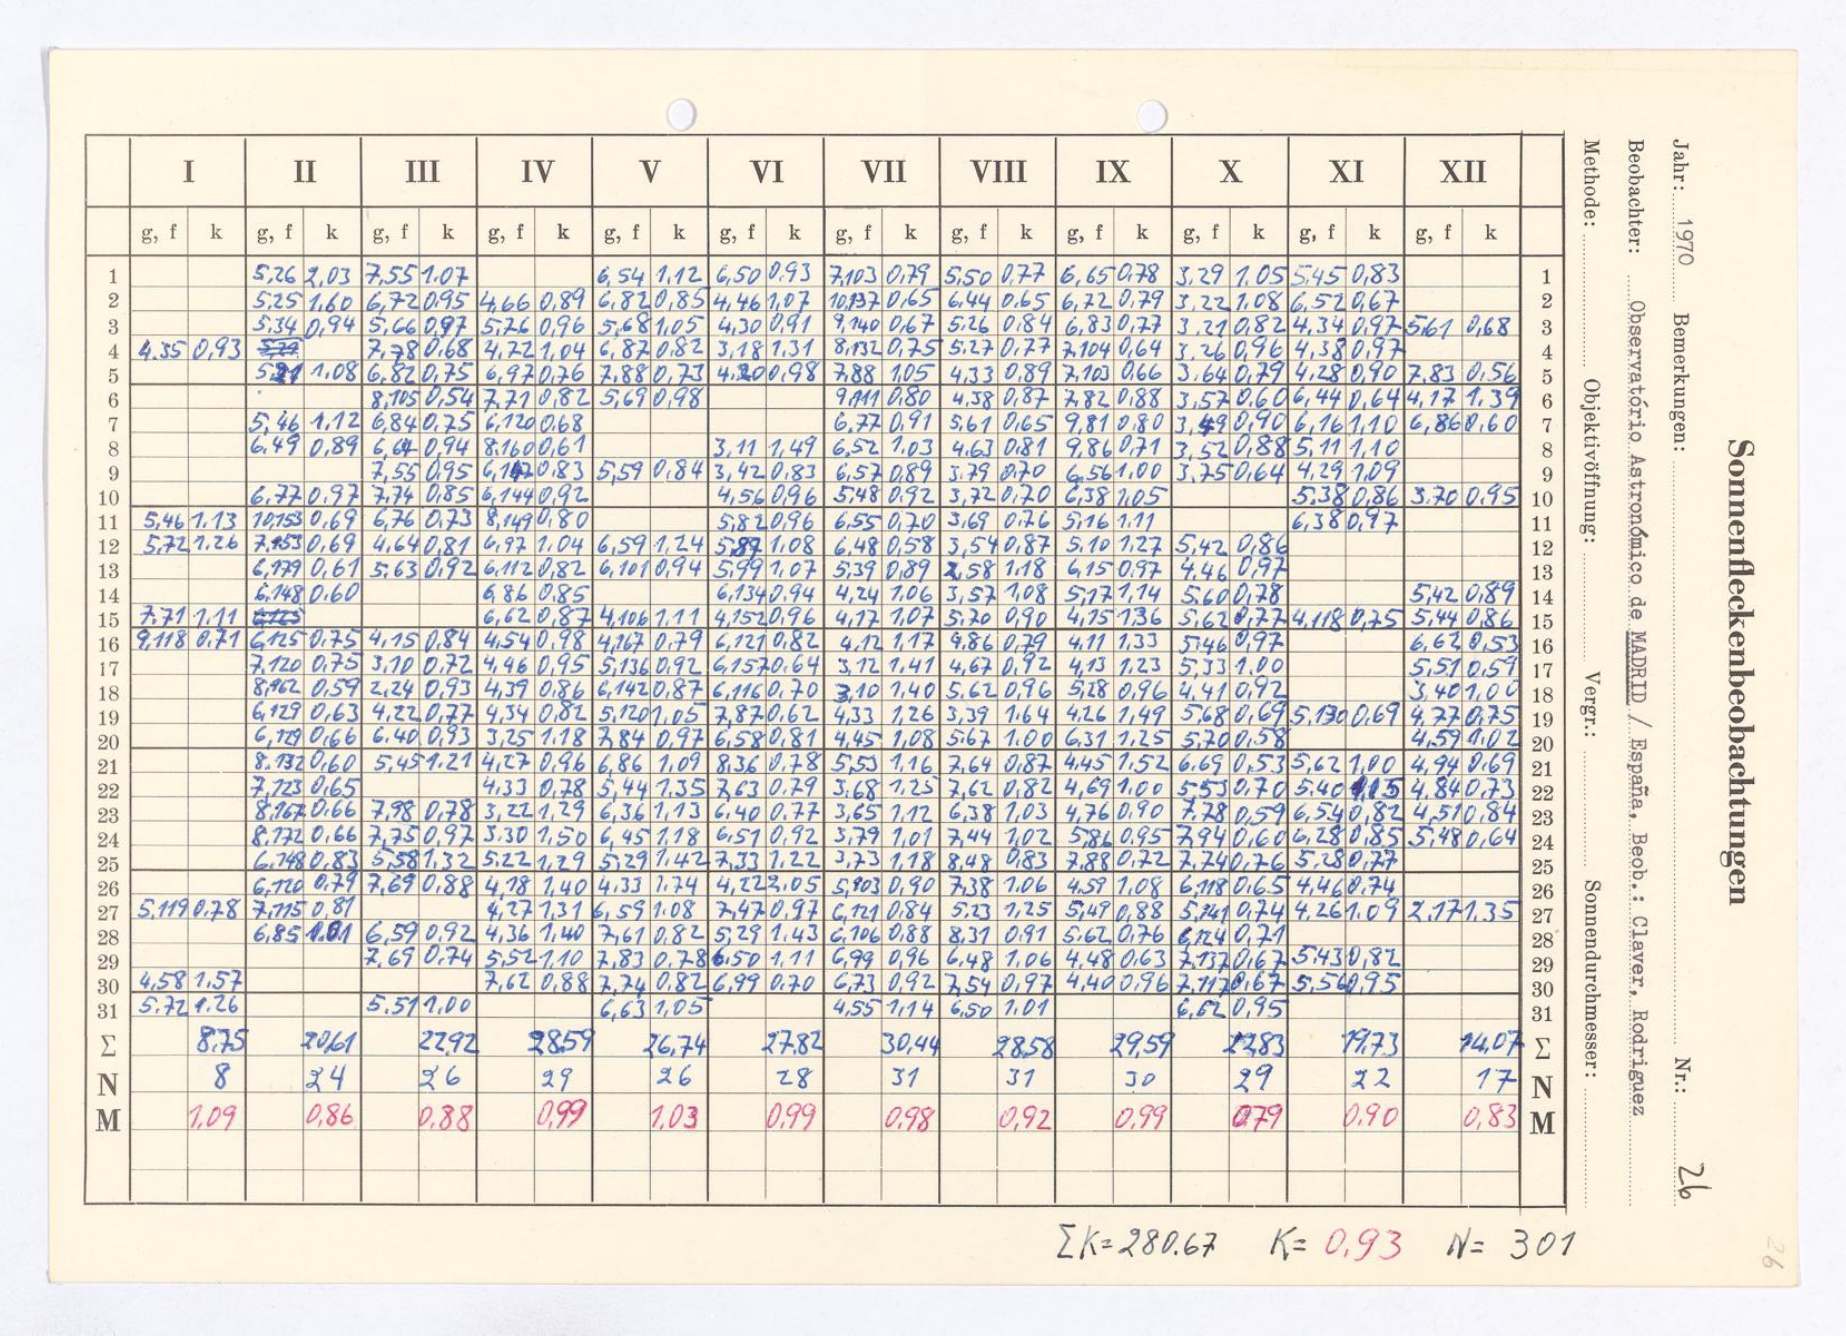 I II III IV V VI VII VIII IX X XI XII
g, f k g, f k g, f k g, f k g, f k g, f k g, f k g, f k g, f k g, f k g, f k g, f k
1 5,26 2,03 7,55 1,07 6,54 1,12 6,50 0,93 7,103 0,79 5,50 0,77 6,65 0,78 3,29 1,05 5,45 0,83 1
2 5,25 1,60 6,72 0,95 4,66 0,89 6,82 0,85 4,46 1,07 10,137 0,65 6,44 0,65 6,72 0,79 3,22 1,08 6,52 0,67 2
3 5,34 0,94 5,66 0,97 5,76 0,96 5,68 1,05 4,30 0,91 9,140 0,67 5,26 0,84 6,83 0,77 3,21 0,82 4,34 0,97 5,61 0,68 3
4 4,35 0,93 7,78 0,68 4,72 1,04 6,87 0,82 3,18 1,31 8,132 0,75 5,27 0,77 7,104 0,64 3,26 0,96 4,38 0,97 4
5 1,08 6,82 0,75 6,97 0,76 7,88 0,73 4,20 0,98 7,88 1,05 4,33 0,89 7,103 0,66 3,64 0,79 4,28 0,90 7,83 0,56 5
6 8,105 0,54 7,71 0,82 5,69 0,98 9,111 0,80 4,38 0,87 7,82 0,88 3,57 0,60 6,44 0,64 4,17 1,39 6
7 5,46 1,12 6,84 0,75 6,120 0,68 6,77 0,91 5,61 0,65 9,81 0,80 3,49 0,90 6,16 1,10 6,86 0,60 7
8 6,49 0,89 6,64 0,94 8,160 0,61 3,11 1,49 6,52 1,03 4,63 0,81 9,86 0,71 3,52 0,88 5,11 1,10 8
9 7,55 0,95 0,83 5,59 0,84 3,42 0,83 6,57 0,89 3,79 0,70 6,56 1,00 3,75 0,64 4,29 1,09 9
10 6,77 0,97 7,74 0,85 6,144 0,92 4,56 0,96 5,48 0,92 3,72 0,70 6,38 1,05 5,38 0,86 3,70 0,95 10
11 5,46 1,13 10,153 0,69 6,76 0,73 8,149 0,80 5,82 0,96 6,55 0,70 3,69 0,76 5,16 1,11 6,38 0,97 11
12 5,72 1,26 7,153 0,69 4,64 0,81 6,97 1,04 6,59 1,24 5,87 1,08 6,48 0,58 3,54 0,87 5,10 1,27 5,42 0,86 12
13 6,179 0,61 5,63 0,92 6,112 0,82 6,101 0,94 5,99 1,07 5,39 0,89 2,58 1,18 6,15 0,97 4,46 0,97 13
14 6,148 0,60 6,86 0,85 6,134 0,94 4,24 1,06 3,57 1,08 5,17 1,14 5,60 0,78 5,42 0,89 14
15 7,71 1,11 6,62 0,87 4,106 1,11 4,152 0,96 4,17 1,07 5,70 0,90 4,15 1,36 5,62 0,77 4,118 0,75 5,44 0,86 15
16 9,118 0,71 6,125 0,75 4,15 0,84 4,54 0,98 4,167 0,79 6,121 0,82 4,12 1,17 9,86 0,79 4,11 1,33 5,46 0,97 6,62 0,53 16
17 7,120 0,75 3,10 0,72 4,46 0,95 5,136 0,92 6,157 0,64 3,12 1,41 4,67 0,92 4,13 1,23 5,33 1,00 5,51 0,59 17
18 8,162 0,59 2,24 0,93 4,39 0,86 6,142 0,87 6,116 0,70 3,10 1,40 5,62 0,96 5,28 0,96 4,41 0,92 3,40 1,00 18
19 6,129 0,63 4,22 0,77 4,34 0,82 5,120 1,05 7,87 0,62 4,33 1,26 3,39 1,64 4,26 1,49 5,68 0,69 5,130 0,69 4,77 0,75 19
20 6,119 0,66 6,40 0,93 3,25 1,18 7,84 0,97 6,58 0,81 4,45 1,08 5,67 1,00 6,31 1,25 5,70 0,58 4,59 1,02 20
21 8,132 0,60 5,45 1,21 4,27 0,96 6,86 1,09 8,36 0,78 5,53 1,16 7,64 0,87 4,45 1,52 6,69 0,53 5,62 1,00 4,94 0,69 21
22 7,123 0,65 4,33 0,78 5,44 1,35 7,63 0,79 3,68 1,25 7,62 0,82 4,69 1,00 5,53 0,70 5,40 1,15 4,84 0,73 22
23 8,167 0,66 7,98 0,78 3,22 1,29 6,36 1,13 6,40 0,77 3,65 1,12 6,38 1,03 4,76 0,90 7,78 0,59 6,54 0,82 4,51 0,84 23
24 8,172 0,66 7,75 0,97 3,30 1,50 6,45 1,18 6,51 0,92 3,79 1,01 7,44 1,02 5,86 0,95 7,94 0,60 6,28 0,85 5,48 0,64 24
25 6,148 0,83 5,58 1,32 5,22 1,29 5,29 1,42 7,33 1,22 3,73 1,18 8,48 0,83 7,88 0,72 7,74 0,76 5,28 0,77 25
26 6,120 0,79 7,69 0,88 4,18 1,40 4,33 1,74 4,22 2,05 5,103 0,90 7,38 1,06 4,59 1,08 6,118 0,65 4,46 0,74 26
27 5,119 0,78 7,115 0,81 4,27 1,31 6,59 1,08 7,47 0,97 6,121 0,84 5,23 1,25 5,49 0,88 5,141 0,74 4,26 1,09 2,17 1,35 27
28 6,85 1,01 6,59 0,92 4,36 1,40 7,61 0,82 5,29 1,43 6,106 0,88 8,31 0,91 5,62 0,76 6,124 0,71 28
29 7,69 0,74 5,52 1,10 7,83 0,78 6,50 1,11 6,99 0,96 6,48 1,06 4,48 0,63 7,137 0,67 5,43 0,82 29
30 4,58 1,57 7,62 0,88 7,74 0,82 6,99 0,70 6,73 0,92 7,54 0,97 4,40 0,96 7,117 0,67 5,56 0,95 30
31 5,72 1,26 5,51 1,00 6,63 1,05 4,55 1,14 6,50 1,01 6,62 0,95 31
Σ 8,75 20,61 22,92 28,59 26,74 27,82 30,44 28,58 29,59 22,83 19,73 14,07 Σ
N 8 24 26 29 26 28 31 31 30 29 22 17 N
M 1,09 0,86 0,88 0,99 1,03 0,99 0,98 0,92 0,99 0,79 0,90 0,83 M
ΣK = 280.67 K = 0,93 N = 301
Sonnenfleckenbeobachtungen
Jahr: 1970 Bemerkungen: Nr.: 26
Beobachter: Observatório Astronómico de MADRID / España, Beob.: Claver, Rodriguez
Methode: Objektivöffnung: Vergr.: Sonnendurchmesser:
26